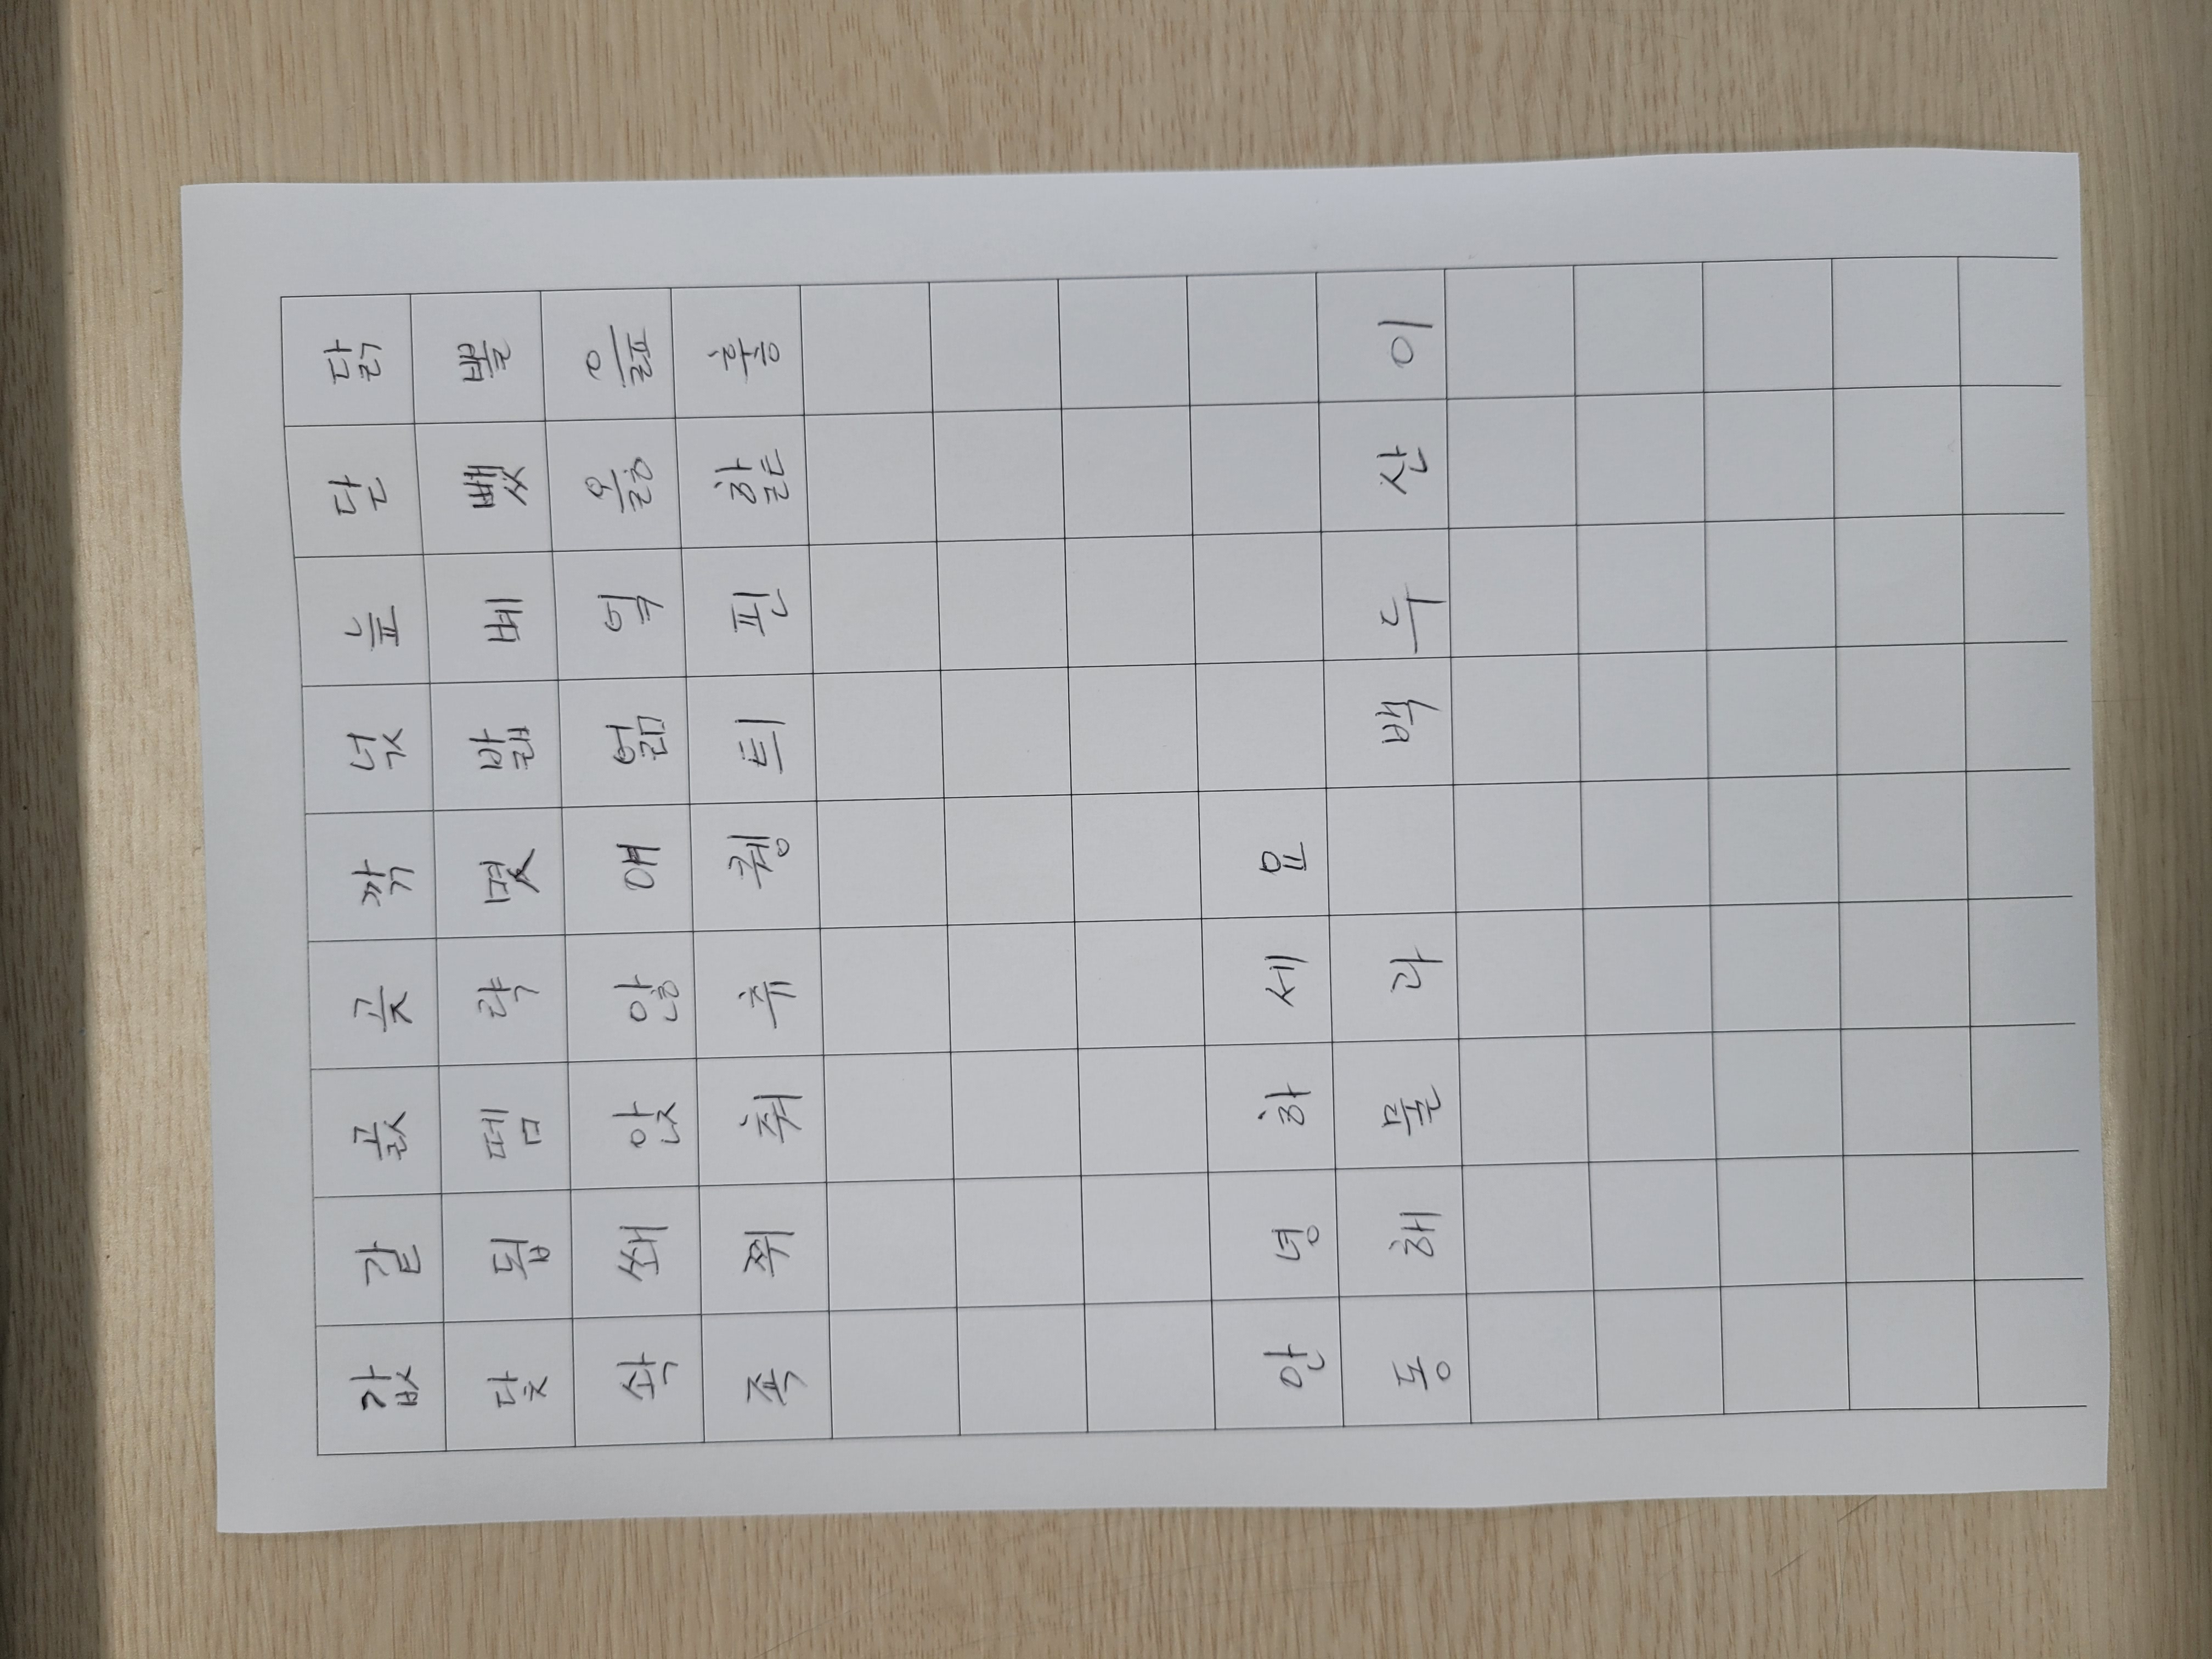 값 같 곬 곶 깎 넋 늪 닫 닭
닻 됩 뗌 략 몇 밟 볘 뺐 뽈
솩 쐐 앉 않 얘 엶 엌 옳 읊
죡 쮜 춰 츄 퀭 틔 핀 핥 훌
안 녕 하 세 요
동 해 물 과 백 두 산 이